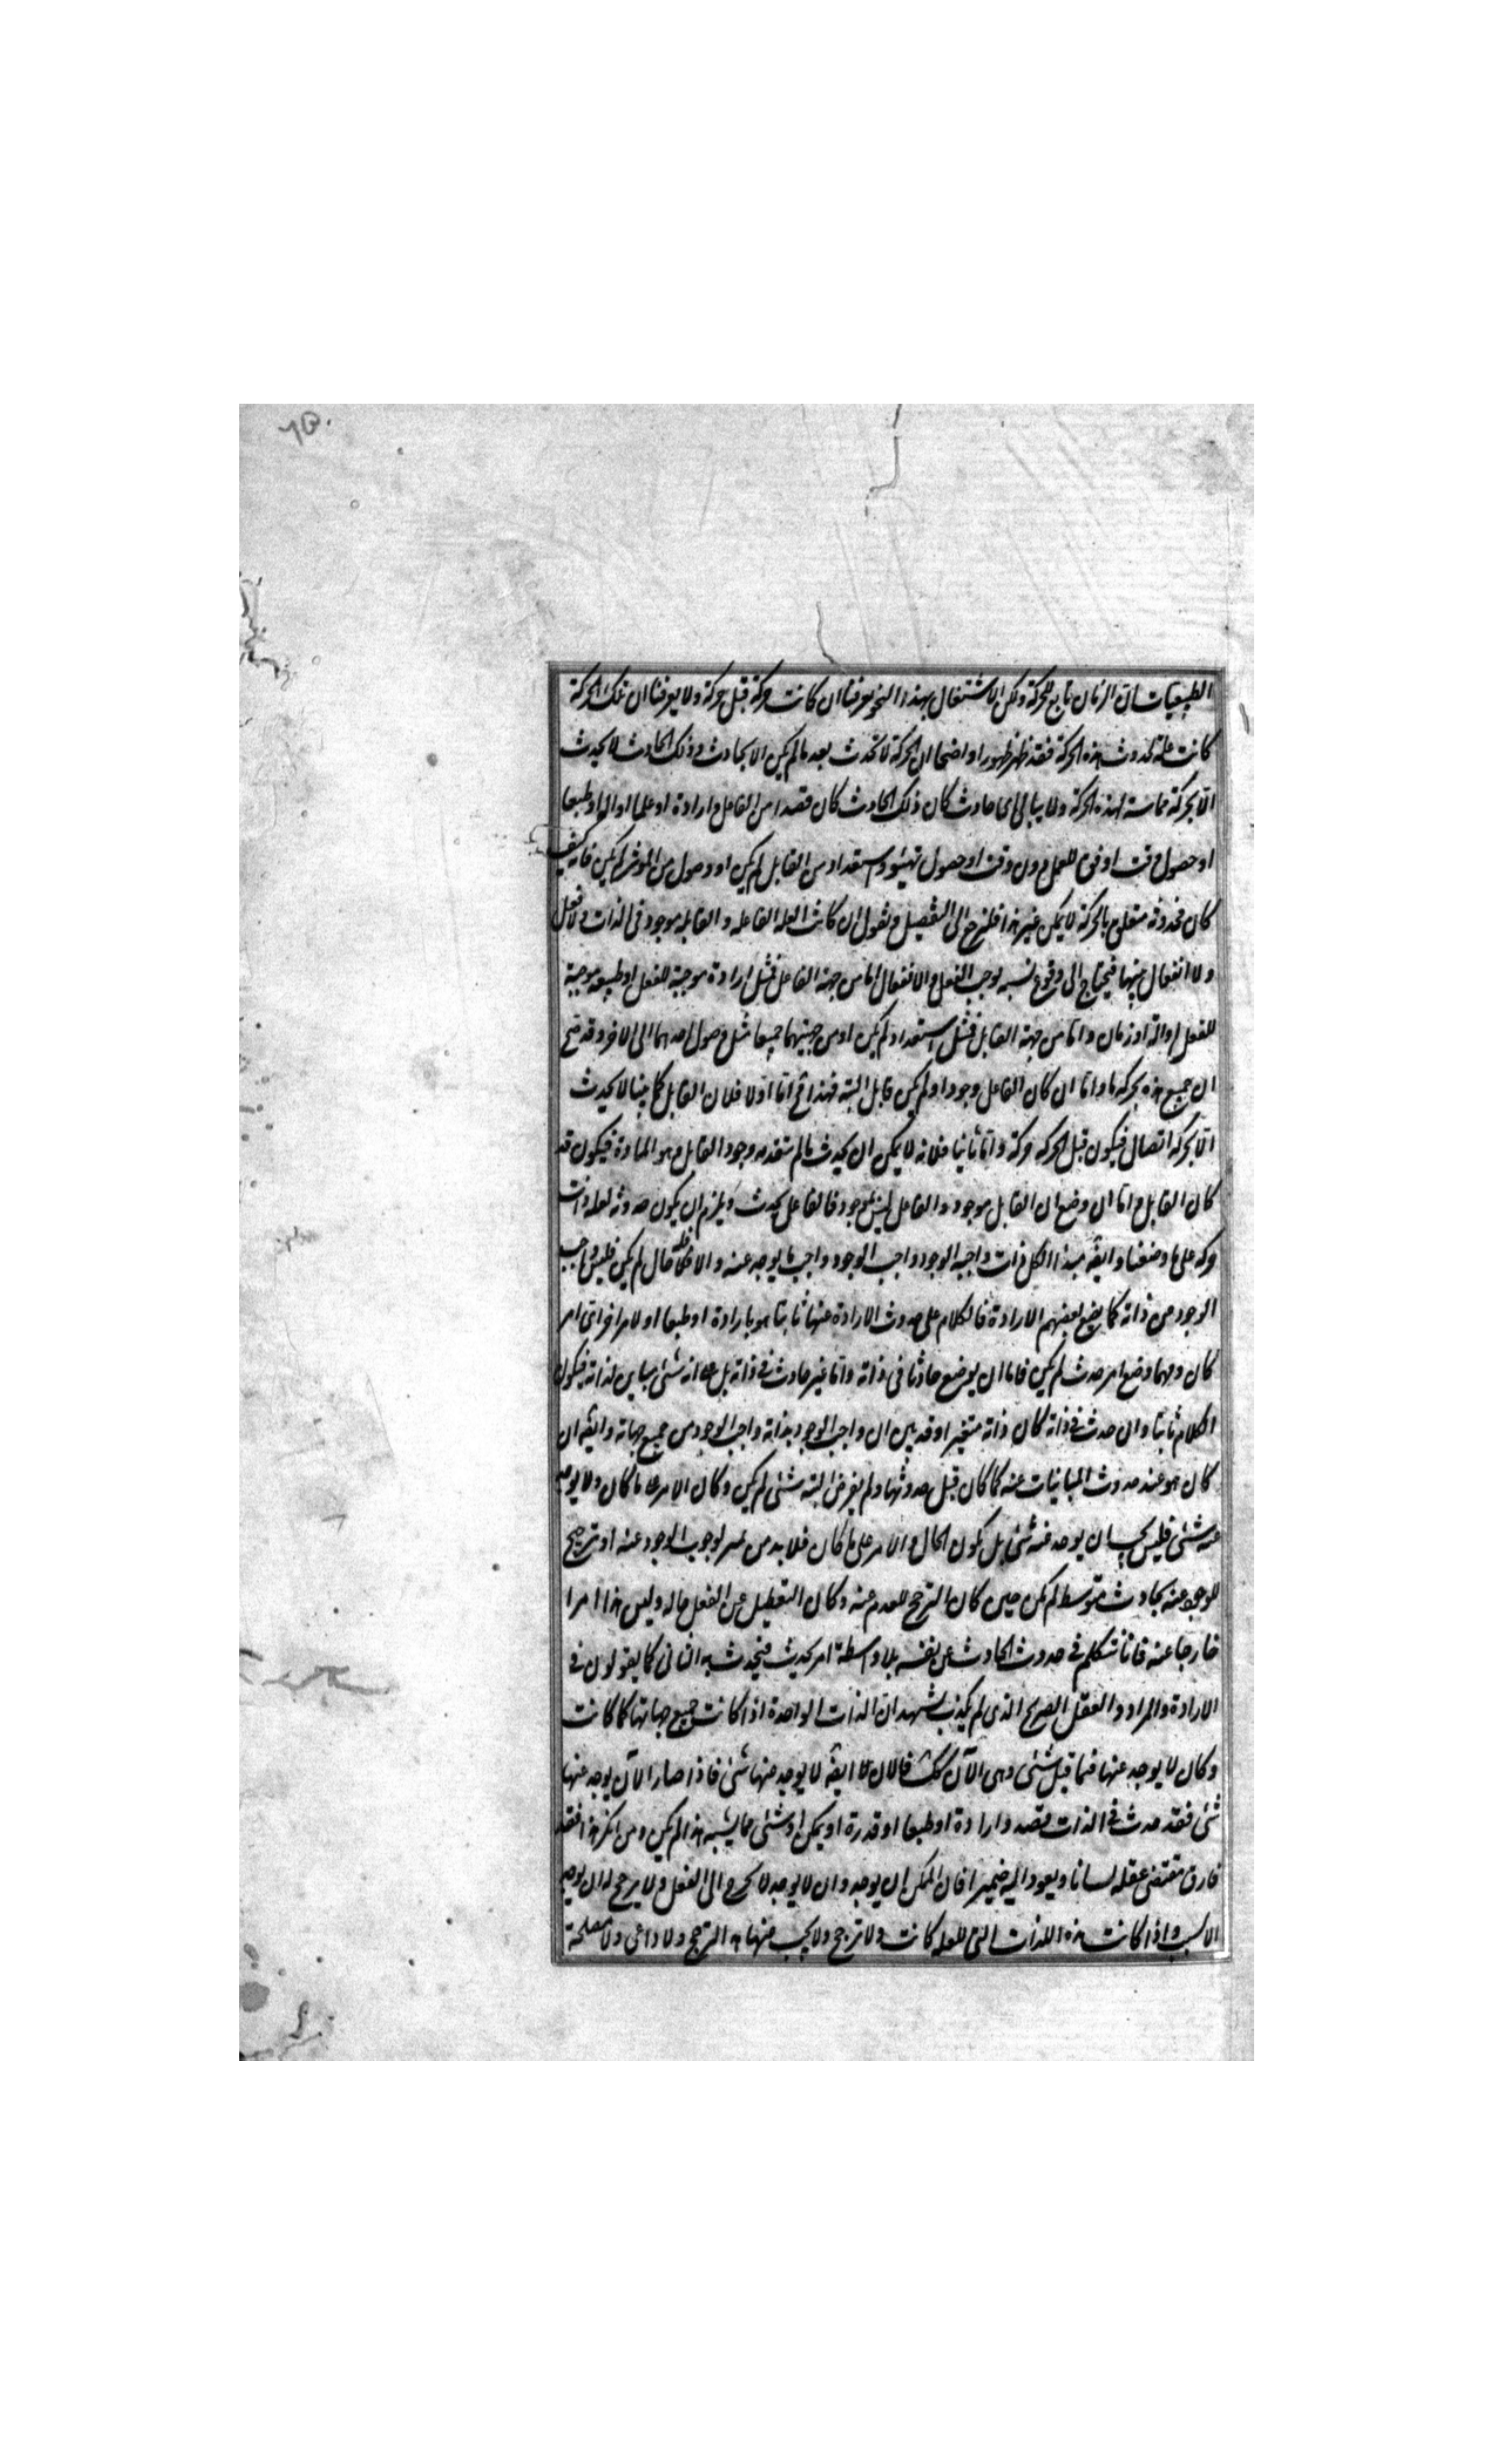 الطبيعيات ان الزمان تابع للحركة ولكن الاشتغال بهذا النحو يعرفنا ان كانت حركة قبل حركة ولا يعرفنا ان تلك الحركة
كانت علة لحدوث هذه الحركة فقد ظهر ظهورا واضحا ان الحركة لا تحدث بعد ما لم يكن الا بحادث وذلك الحادث لا يحدث
الا بحركة مماسة لهذه الحركة ولا يبالى اى حادث كان ذلك الحادث كان قصدا من الفاعل او ارادة او علما او الة او طبعا
او حصول وقت اوفق للعمل دون وقت او حصول تهيئو واستعداد من القابل لم يكن او وصول من الموثر لم يكن فانه كيف
كان فحدوثه متعلق بالحركة لا يمكن غير هذا فلنرجع الى التفصيل ونقول ان كانت العله الفاعله والقابله موجودتى الذات ولا فعل
ولا انفعال بينهما فيحتاج الى وقوع نسبه يوجب الفعل والانفعال اما من جهة الفاعل فمثل ارادة موجبة للفعل او طبيعه موجبة
للفعل او الة او زمان واما من جهة القابل فمثل استعداد لم يكن او من جهتيهما جميعا مثل وصول احدهما الى الاخر وقد صح
ان جميع هذه بحركه ما واما ان كان الفاعل وجود او لم يكن قابل البته فهذا مح اما اولا فلان القابل كما بينا لا يحدث
الا بحركه اتصال فيكون قبل الحركه حركة واما ثانيا فلانه لا يمكن ان يحدث ما لم يتقدمه وجود القابل وهو المادة فيكون قد
كان القابل واما ان وضع ان القابل موجود والفاعل ليس بموجود فالفاعل يحدث ويلزم ان يكون حدوثه لعله ذات
حركه على ما وضعنا وايضه مبدا الكل ذات واجبة الوجود وواجب الوجود واجب ما يوجد عنه والا فله حال لم يكن فليس واجب
الوجود من ذاته كما يضع بعضهم الارادة فالكلام على حدوث الارادة عنها ثابتا هو بارادة او طبعا او لامر اخر اى امر
كان ومهما وضع امر حدث لم يكن فاما ان يوضع حادثا فى ذاته واما غير حادث فى ذاته بل على انه شئى مباين لذاته فيكون
الكلام ثابتا وان حدث فى ذاته كان ذاته متغيرا وقد بين ان واجب الوجود بذاته واجب الوجود من جميع جهاته وايضه ان
كان هو عند حدوث المباينات عنه كما كان قبل حدوثها ولم يعرض البته شئى لم يكن وكان الامر على ما كان ولا يوجد
عنه شئى فليس يجب ان يوجد عنه شئى بل يكون الحال والامر على ما كان فلا بد من لوجوب الوجود عنه او ترجيح
للوجود عنه بحادث متوسط لم يكن حين كان الترجح للعدم عنه وكان التعطيل عن الفعل حاله وليس هذا امرا
خارجا عنه فانا نتكلم فى حدوث الحادث عن نفسه بلا واسطة امر يحدث فيحدث به الثانى كما يقولون فى
الارادة والمراد والعقل الصريح الذى لم يكذب يشهد ان الذات الواحدة اذا كانت جميع جهاتها كما كانت
وكان لا يوجد عنها فيما قبل شئى وهى الآن كك فالان لا ايضه لا يوجد منها شئى فاذا صار الآن يوجد عنها
شئى فقد حدث فى الذات قصد وارادة او طبعا او قدرة او يمكن او شئى مما يشبه هذا لم يكن ومن انكر هذا فقد
فارق مقتضى عقله لسانا ويعود اليه ضميرا فان الممكن ان يوجد وان لا يوجد لا يخرج الى الفعل ولا يرجح له ان يوجد
الا بسبب واذا كانت هذه الذات التى للعله كانت ولا ترجح ولا يجب منها هذا الترجح ولا داعى ولا مصلحة